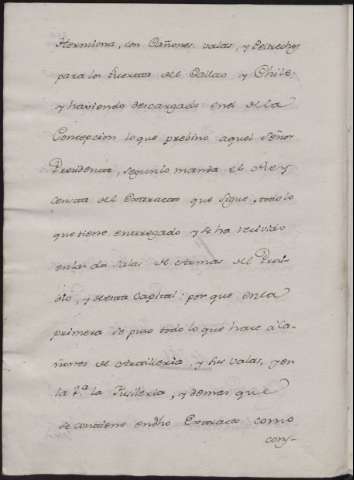 Hermiona, con Cañones, valas, y Petrechos
para los Puertos del Callao, y Chile
y haviendo descargado en el de la
Concepcion lo que previno aquel Señor
Presidente, segun lo manda el Rey
consta del Extracto que sigue, todo lo
que tiene encargado y se ha recivido
en las dos Salas de Armas del Presi-
dio, y de esta Capital: por que en la
primera se puso todo lo que hace a Ca-
ñones de Artilleria, y sus valas, y en
la 2.ª la Fusileria, y demas que
se contiene en dho Extracto como
cons-